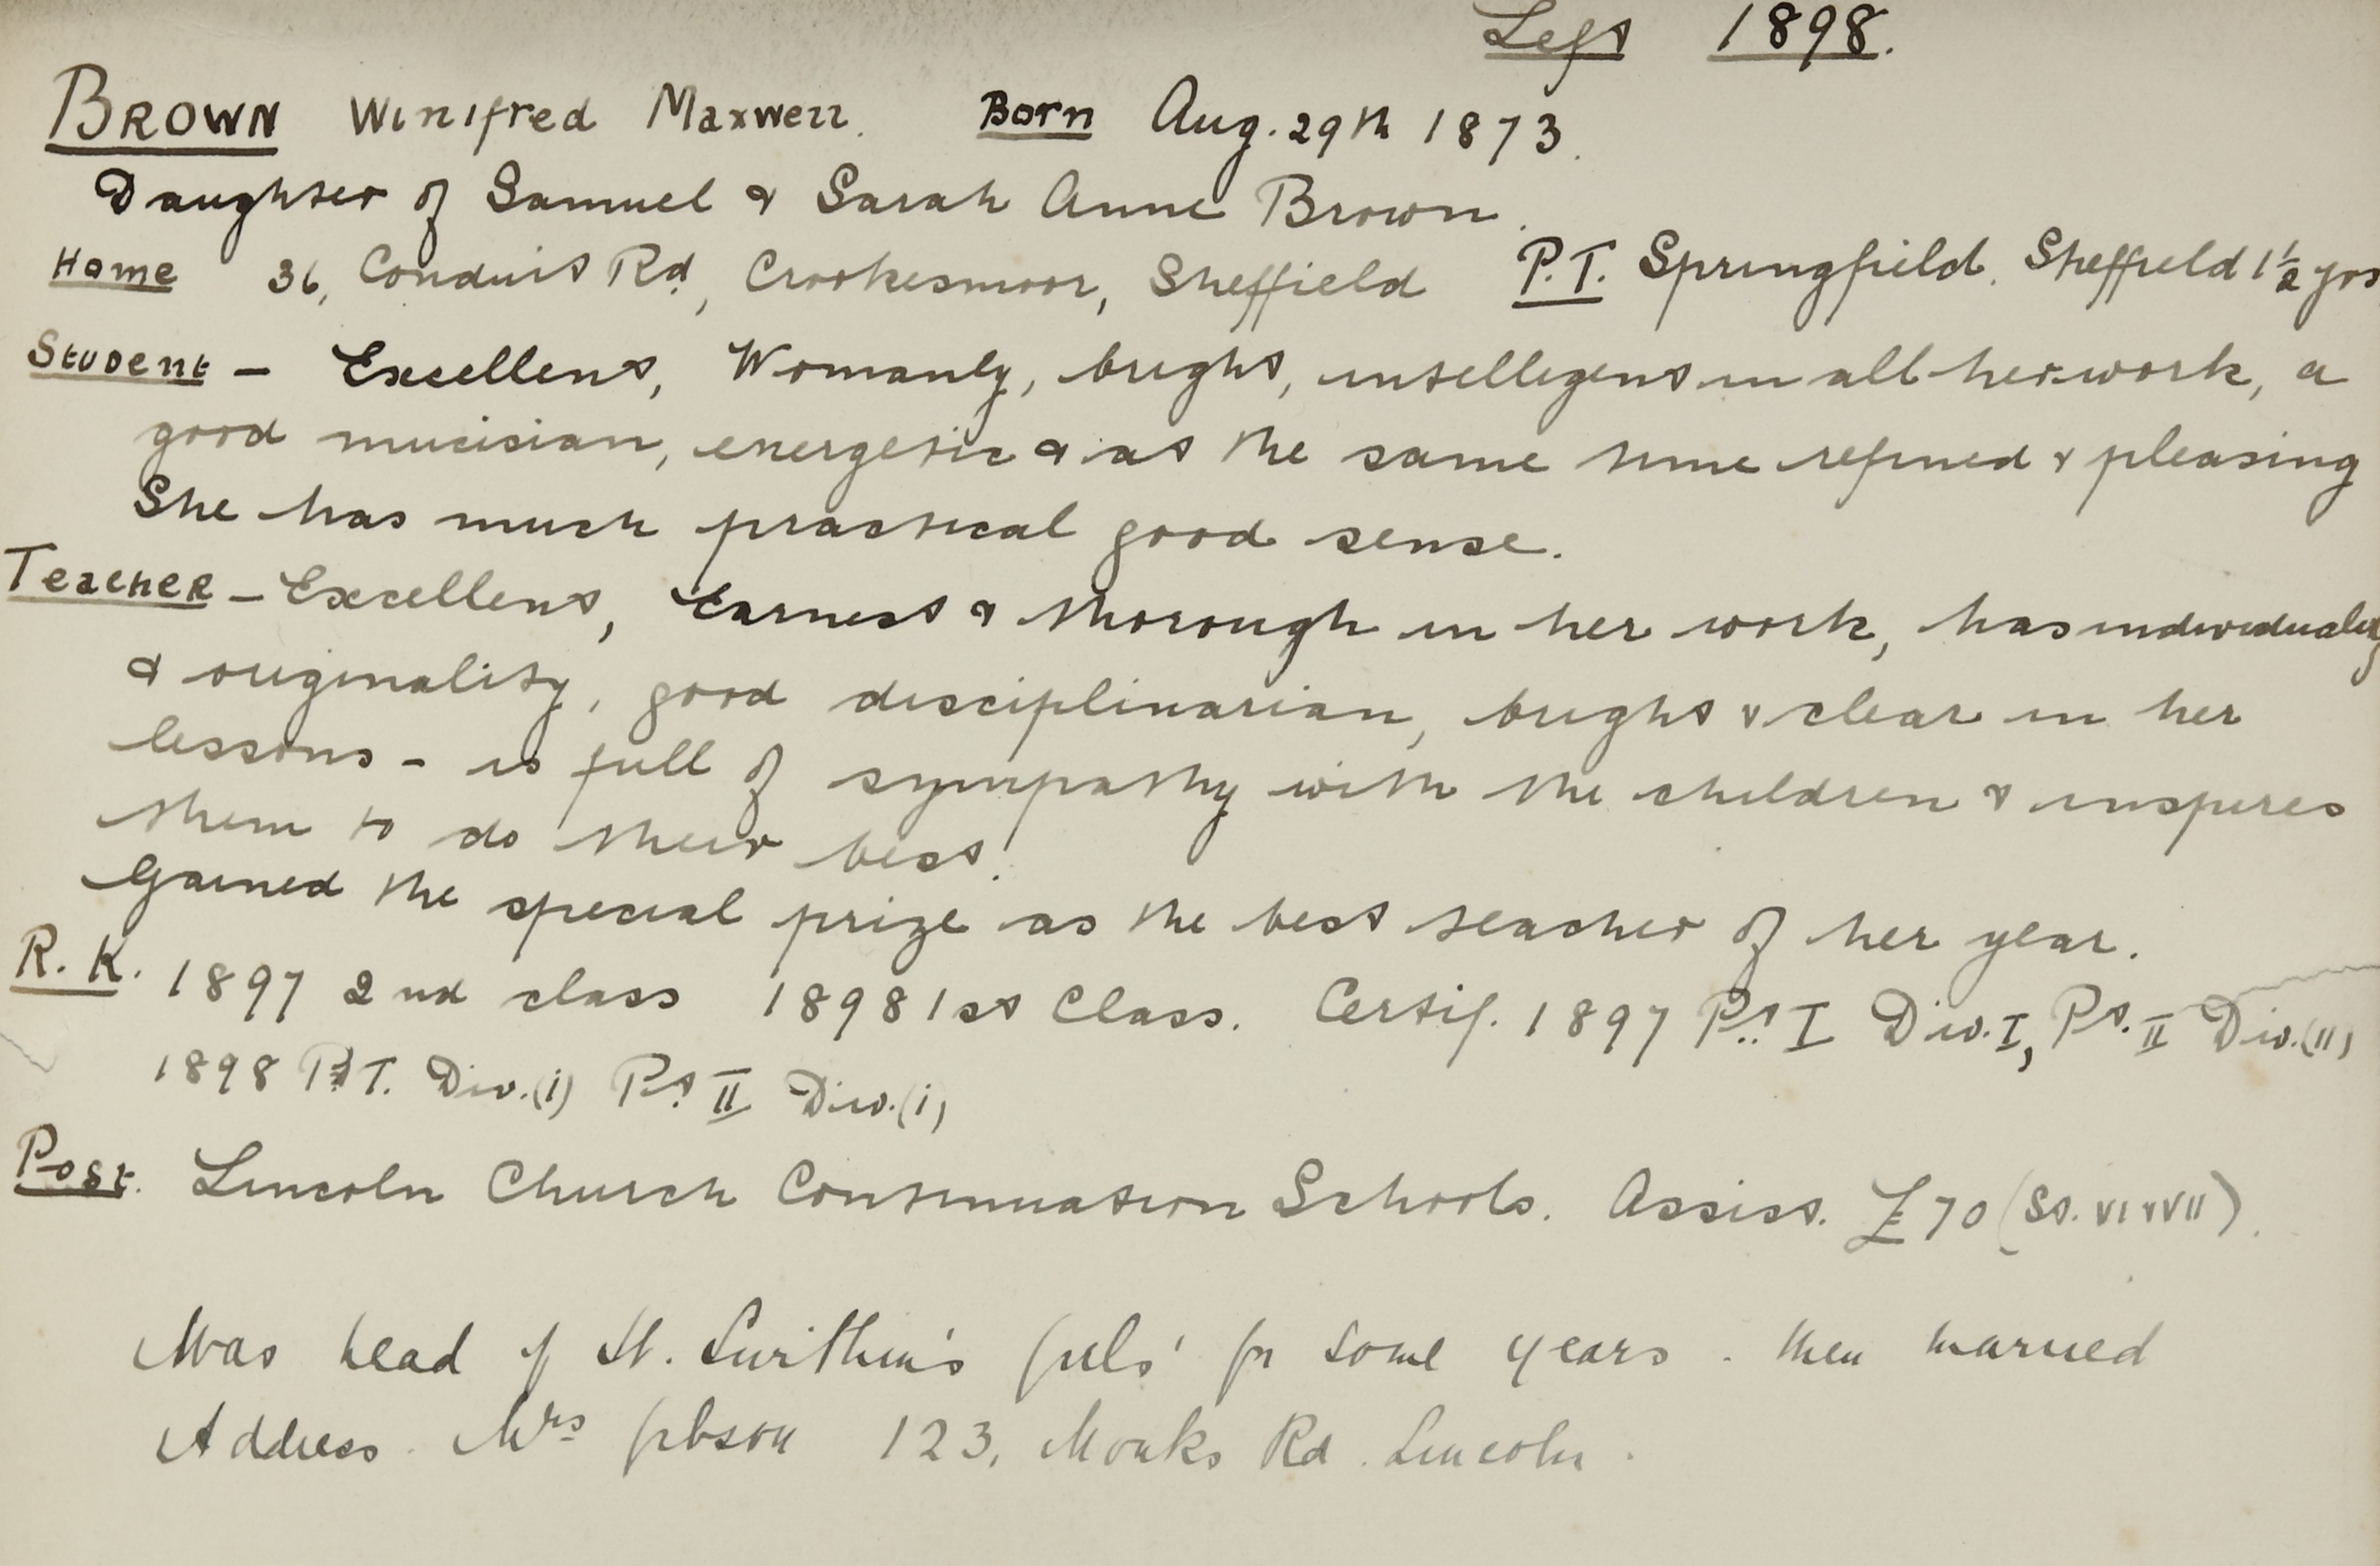 Left 1898.
BROWN Winifred Maxwell. Born Aug. 29th 1873.
Daughter of Samuel & Sarah Anne Brown.
Home 36, Conduit Rd, Crookesmoor, Sheffield P.T. Springfield. Sheffield 1½ yrs
Student – Excellent, Womanly, bright, intelligent in all her work, a
good mucisian, energetic & at the same time refined & pleasing
She has much practical good sense.
Teacher – Excellent, Earnest & thorough in her work, has individuality
& originality, good disciplinarian, bright & clear in her
lessons – is full of sympathy with the children & inspires
them to do their best.
Gained the special prize as the best teacher of her year.
R. K. 1897 2nd class 1898 1st Class. Certif. 1897 Pt. I Div. I, Pt. II Div. (II)
1898 Pt I. Div. (i) Pt. II Div. (i)
Post. Lincoln Church Continuation Schools. Assist. £70 (St. VI & VII).
Was head of St. Swithin's Girls' for some years. then married
Address. Mrs 123, Monks Rd. Lincoln.